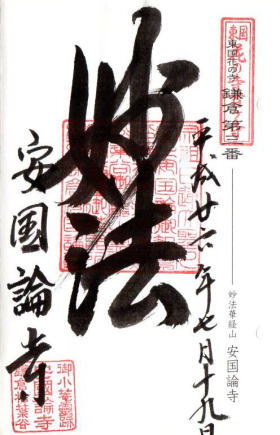 東国花の寺
鎌倉第三番
平成廿六年七月十九日
妙法
安国論寺
妙法華経山 安国論寺
御小菴霊跡
安國論寺
鎌倉松葉谷